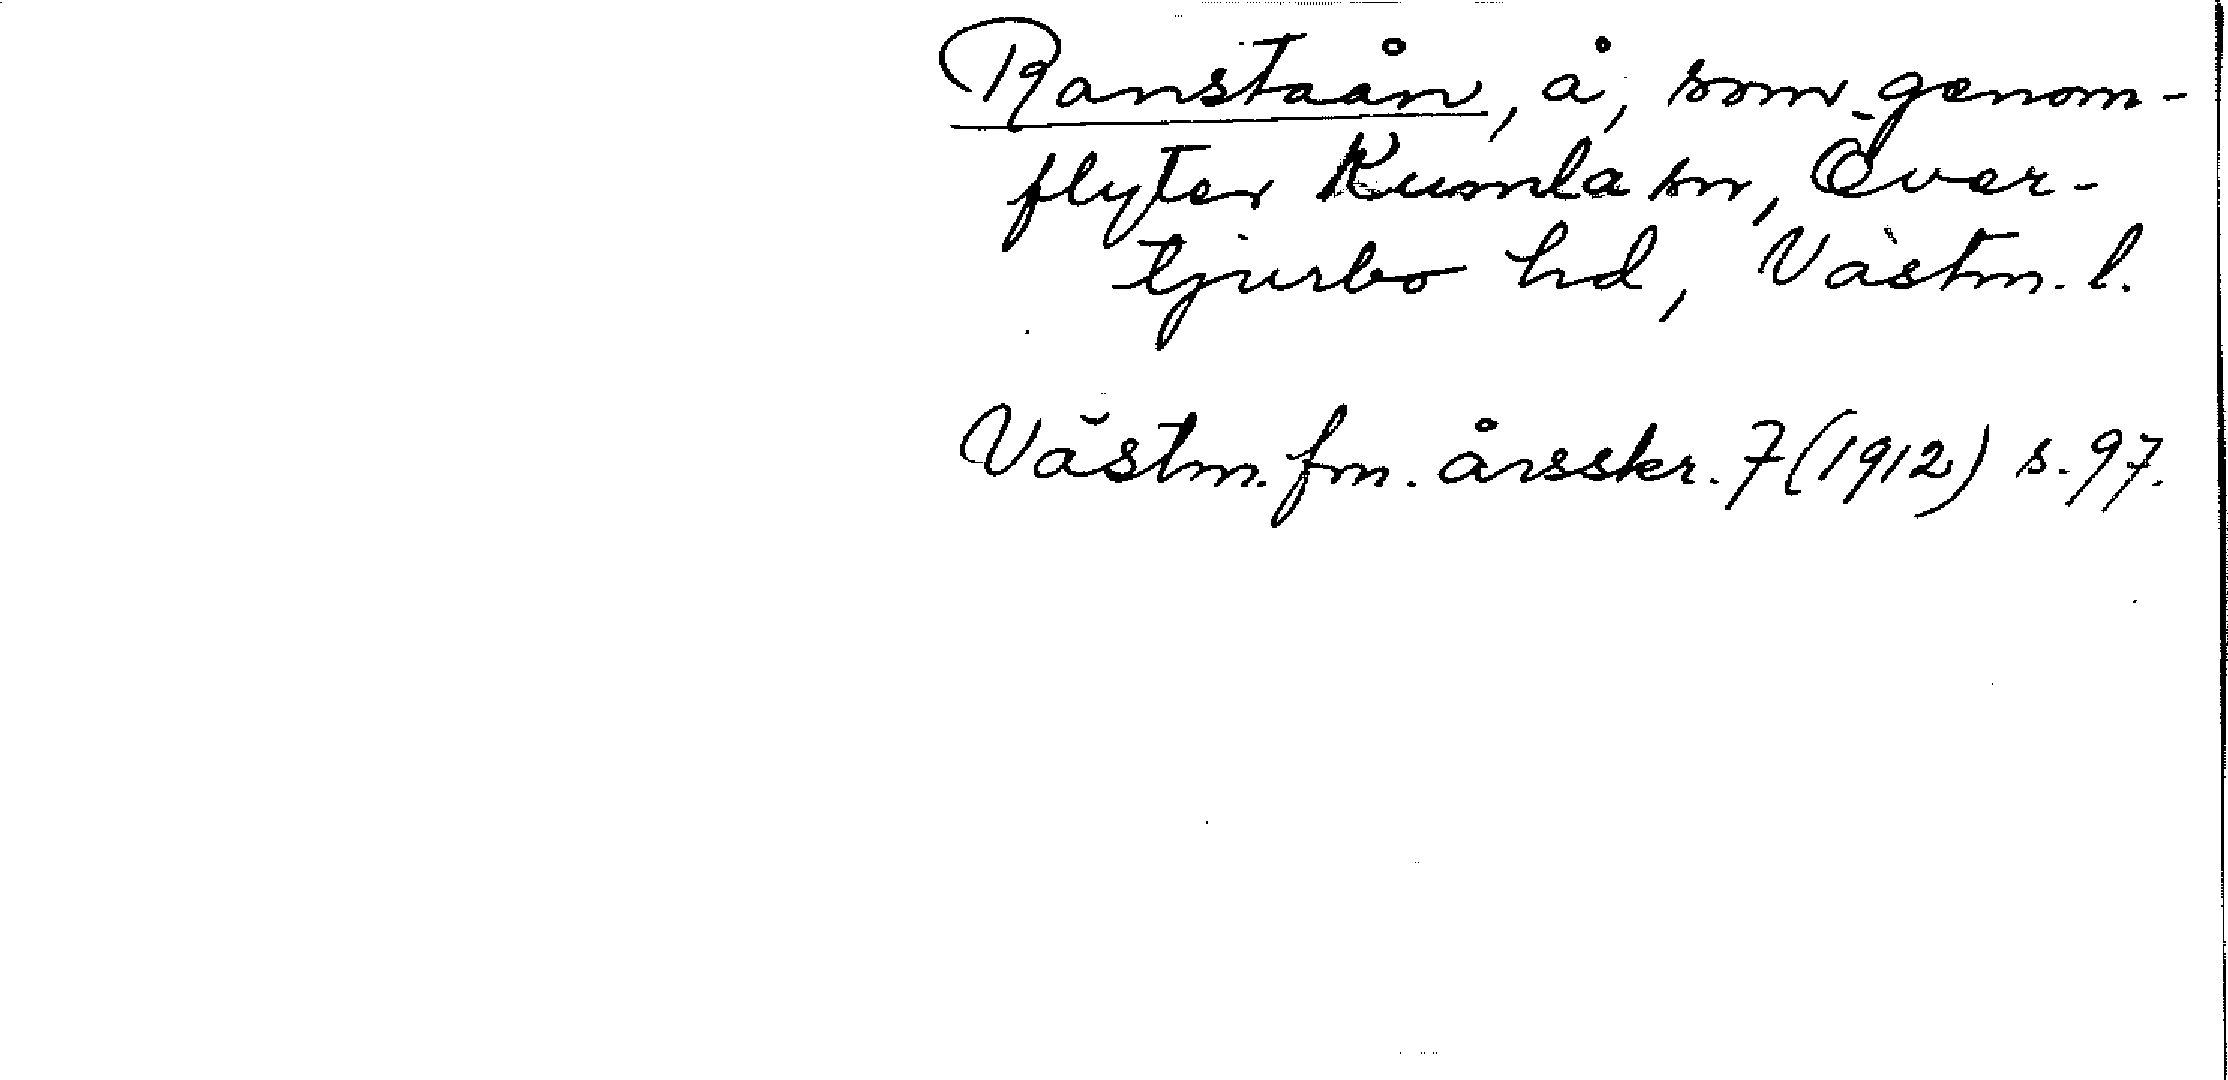 Ranstaån, å, som genom-
flyter Kumla sn, Över-
tjurbo hd, Västm. l.
Västm. fm. årsskr. 7 (1912) s. 97.